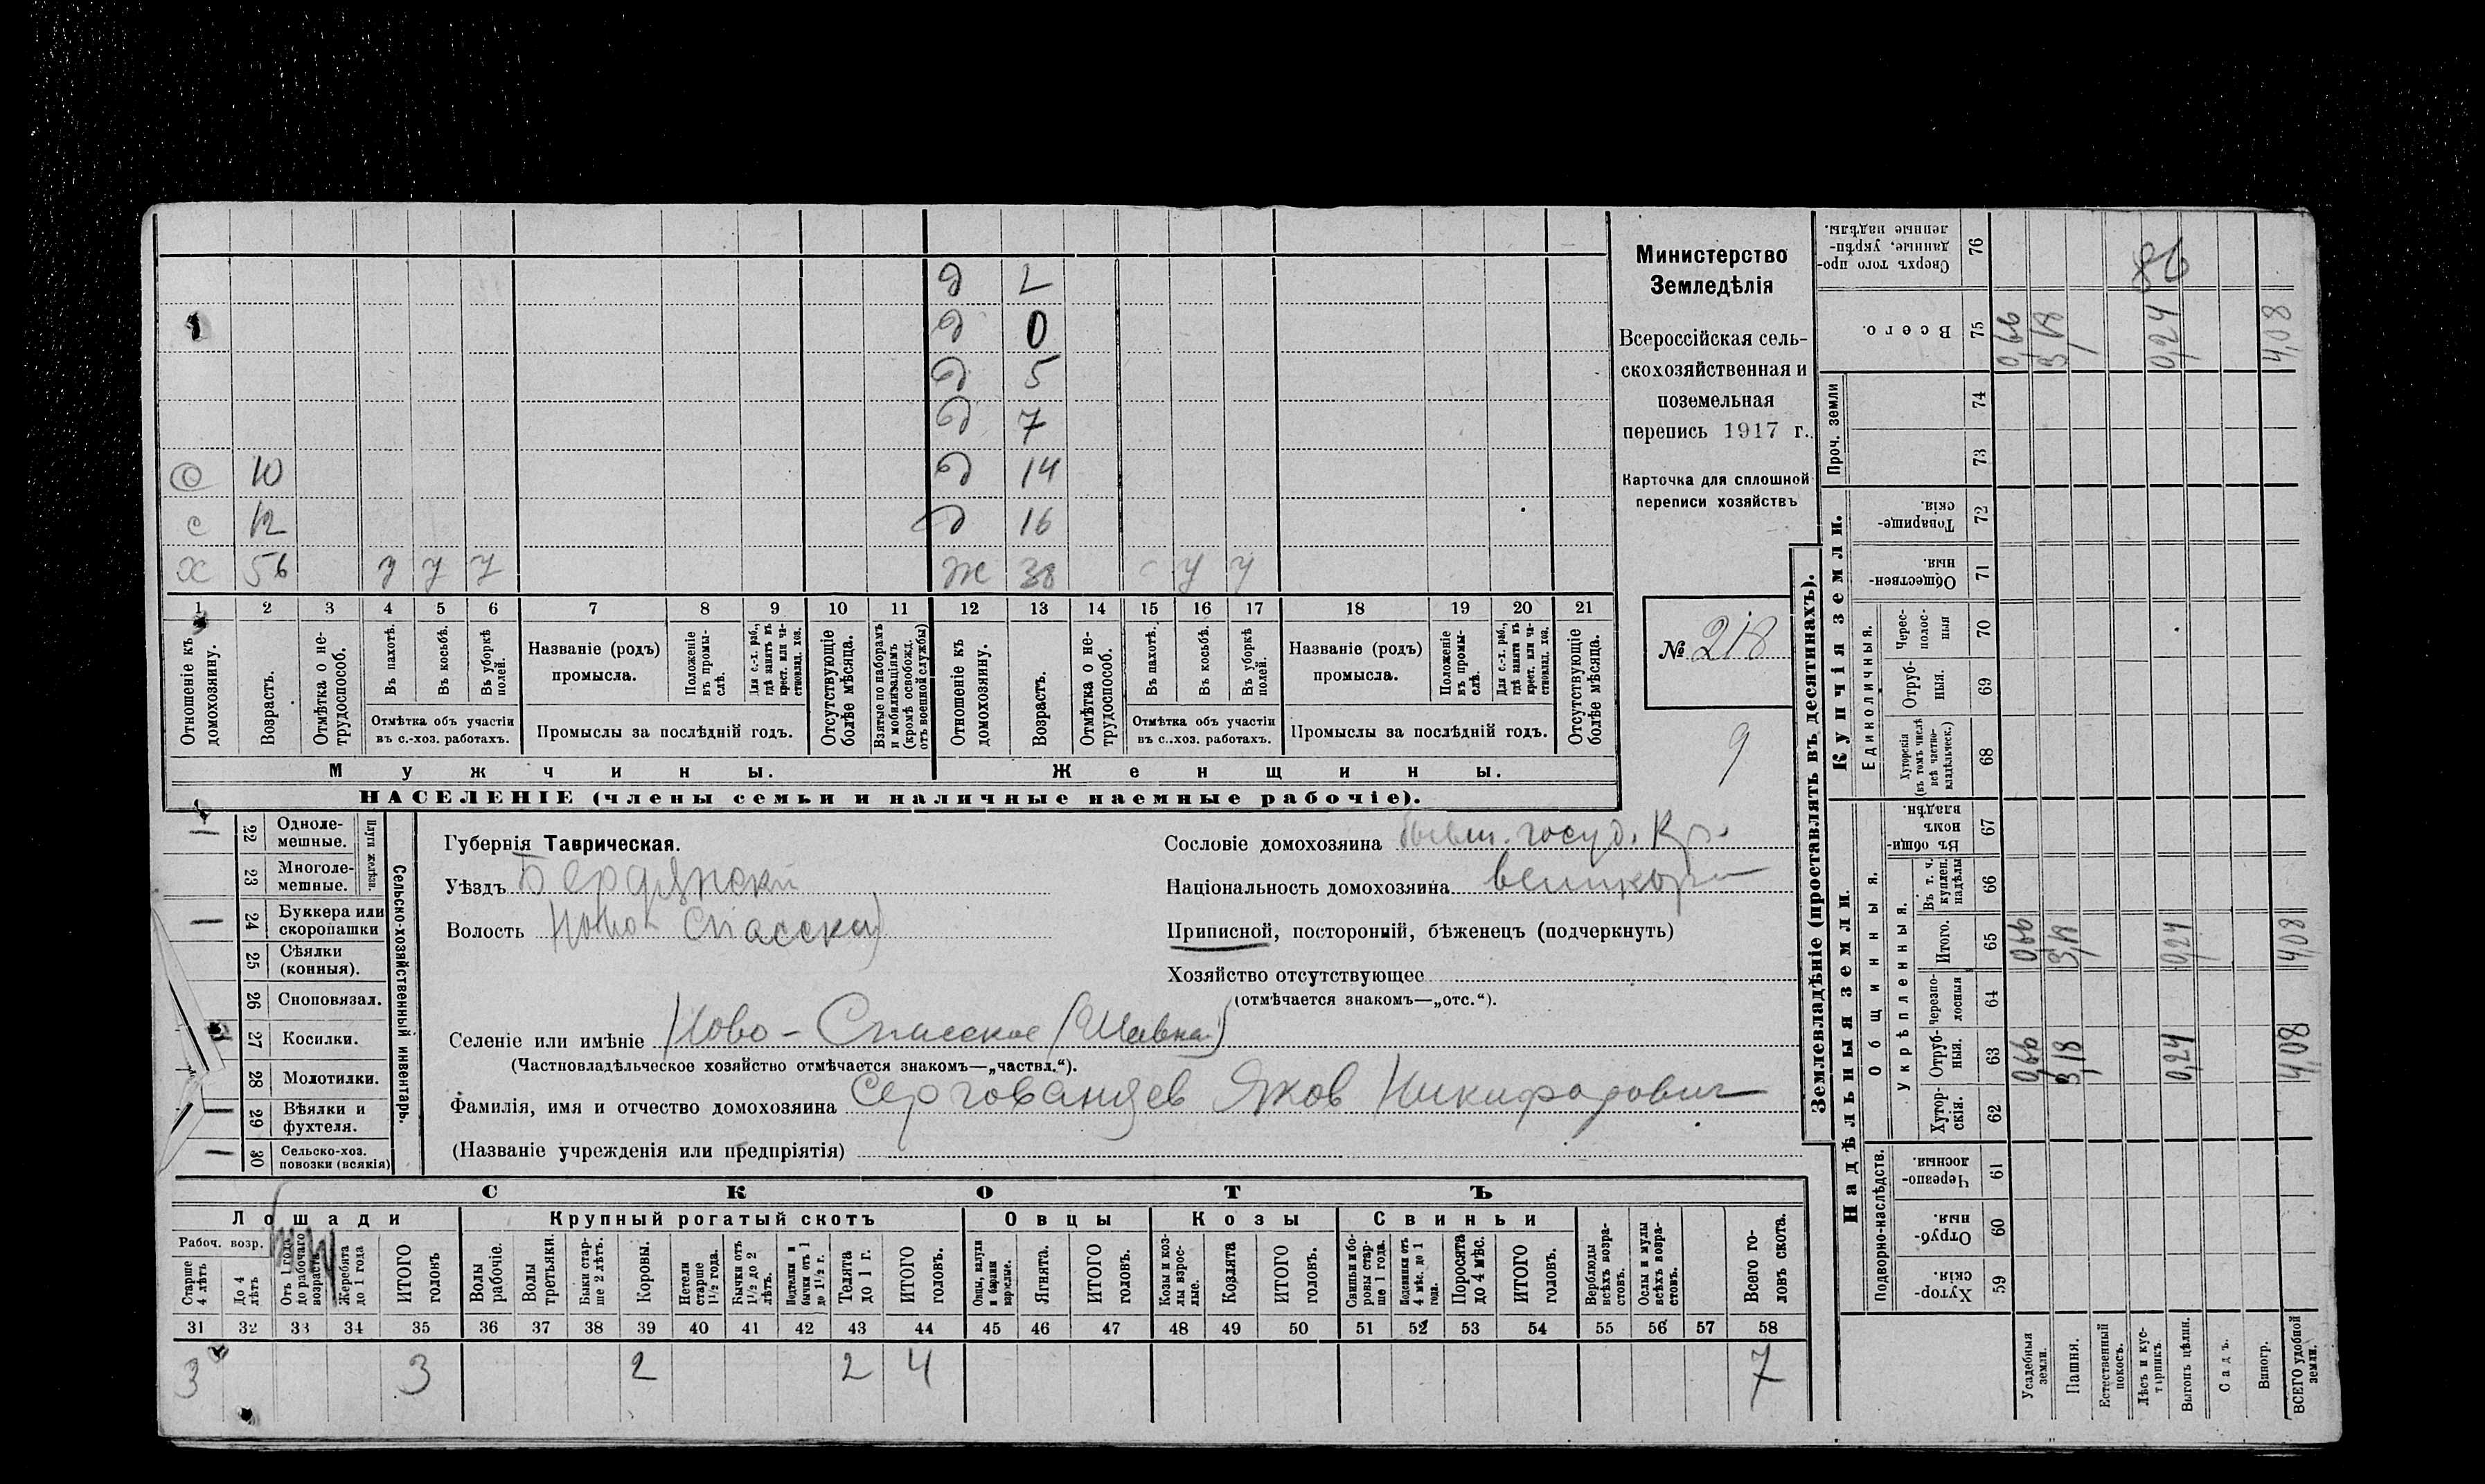 Министерство
Земледѣлія
Всероссійская сель-
скохозяйственная и
поземельная
перепись 1917 г.
Карточка для сплошной
переписи хозяйствъ
№ 218
9
д 2
д 0
д 5
д 7
О 10 д 14
с 12 д 16
Х 56 у у у Ж 38 у у
1 2 3 4 5 6 7 8 9 10 11 12 13 14 15 16 17 18 19 20 21
Отношеніе къ домохозяину.
Возрастъ.
Отмѣтка о не-трудоспособ.
Въ пахотѣ.
Въ косьбѣ.
Въ уборкѣ полей.
Отмѣтка объ участіи въ с.-хоз. работахъ.
Названіе (родъ) промысла.
Положеніе въ промы-слѣ.
Для с.-х. раб., гдѣ занятъ въ крест. или ча-стновлад. хоз.
Промыслы за послѣдній годъ.
Отсутствующіе болѣе мѣсяца.
Взятые по наборамъ и мобилизаціямъ (кромѣ освобожд. отъ военной службы)
Отношеніе къ домохозяину.
Возрастъ.
Отмѣтка о не-трудоспособ.
Въ пахотѣ.
Въ косьбѣ.
Въ уборкѣ полей.
Отмѣтка объ участіи въ с..хоз. работахъ.
Названіе (родъ) промысла.
Положеніе въ промы-слѣ.
Для с.-х. раб., гдѣ занята въ крест. или ча-стновлад. хоз.
Промыслы за послѣдній годъ.
Отсутствующіе болѣе мѣсяца.
Мужчины. Женщины.
НАСЕЛЕНІЕ (члены семьи и наличные наемные рабочіе).
Сельско-хозяйственный инвентарь.
Плуги желѣзн.
22 Одноле-мешные.
23 Многоле-мешные.
24 Буккера или скоропашки
25 Сѣялки (конныя).
26 Сноповязал.
27 Косилки.
28 Молотилки.
29 Вѣялки и фухтеля.
30 Сельско-хоз. повозки (всякія)
Губернія Таврическая.
Уѣздъ Бердянски
Волость Ново Спасская
Сословіе домохозяина бывш. госуд. Кр.
Національность домохозяина великор
Приписной, посторонній, бѣженецъ (подчеркнуть)
Хозяйство отсутствующее
(отмѣчается знакомъ—„отс.“).
Селеніе или имѣніе Ново-Спасское
(Частновладѣльческое хозяйство отмѣчается знакомъ—„частвл.“).
Фамилія, имя и отчество домохозяина Сергованцев Яков Никифорович
(Названіе учрежденія или предпріятія)
СКОТЪ
Лошади Крупный рогатый скотъ Овцы Козы Свиньи
Рабоч. возр.
Старше 4 лѣтъ
До 4 лѣтъ
Отъ 1 года до рабочаго возраста
Жеребята до 1 года
ИТОГО головъ
Волы рабочіе.
Волы третьяки.
Быки стар-ше 2 лѣтъ.
Коровы.
Нетели старше 1½ года.
Бычки отъ 1½ до 2 лѣтъ.
Подтелки и бычки отъ 1 до 1½ г.
Телята до 1 г.
ИТОГО головъ.
Овцы, валухи и бараны взрослые.
Ягнята.
ИТОГО головъ.
Козы и коз-лы взрос-лые.
Козлята
ИТОГО головъ.
Свиньи и бо-ровы стар-ше 1 года.
Подсвинки отъ 4 мѣс. до 1 года.
Поросята до 4 мѣс.
ИТОГО головъ.
Верблюды всѣхъ возра-стовъ.
Ослы и мулы всѣхъ возра-стовъ.
Всего го-ловъ скота.
31 32 33 34 35 36 37 38 39 40 41 42 43 44 45 46 47 48 49 50 51 52 53 54 55 56 57 58
3 3 2 2 4 7
Землевладѣніе (проставлять въ десятинахъ).
Купчія земли.
Надѣльныя земли.
Проч. земли
Сверхъ того про-данные, укрѣп-ленные надѣлы. 76
86
Всего. 75 0,66 3,18 0,24 4,08
74
73
Товарище-скія. 72
Обществен-ныя. 71
Единоличныя.
Черес-полос-ныя 70
Отруб-ныя. 69
Хуторскія (въ томъ числѣ всѣ частно-владѣльческ.) 68
Общинныя.
Въ общин-номъ владѣн. 67
Укрѣпленныя.
Въ т. ч. куплен. надѣлы 66
Итого. 65 0,66 3,18 0,24 4,08
Черезпо-лосныя 64
Отруб-ныя. 63 0,66 3,18 0,24 4,08
Хутор-скія. 62
Подворно-наслѣдств.
Черезпо-лосныя. 61
Отруб-ныя. 60
Хутор-скія. 59
Усадебныя земли.
Пашня.
Естественный покосъ.
Лѣсъ и кус-тарникъ.
Выгонъ цѣлин.
Садъ.
Виногр.
ВСЕГО удобной земли.